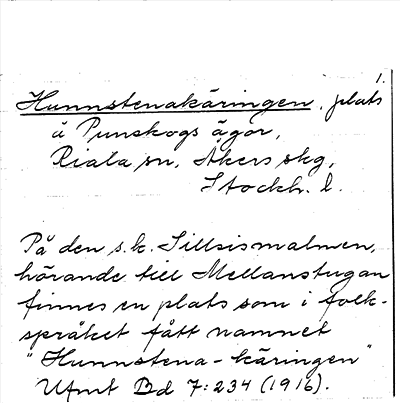 1.
Hunnstenakäringen, plats
å Punskogs ägor,
Riala sn, Åkers skg,
Stockh. l.
På den s.k. Sillsismalmen,
hörande till Mellanstugan
finnes en plats som i folk-
språket fått namnet
"Hunnstena-käringen"
Ufmt Bd 7:234 (1916).